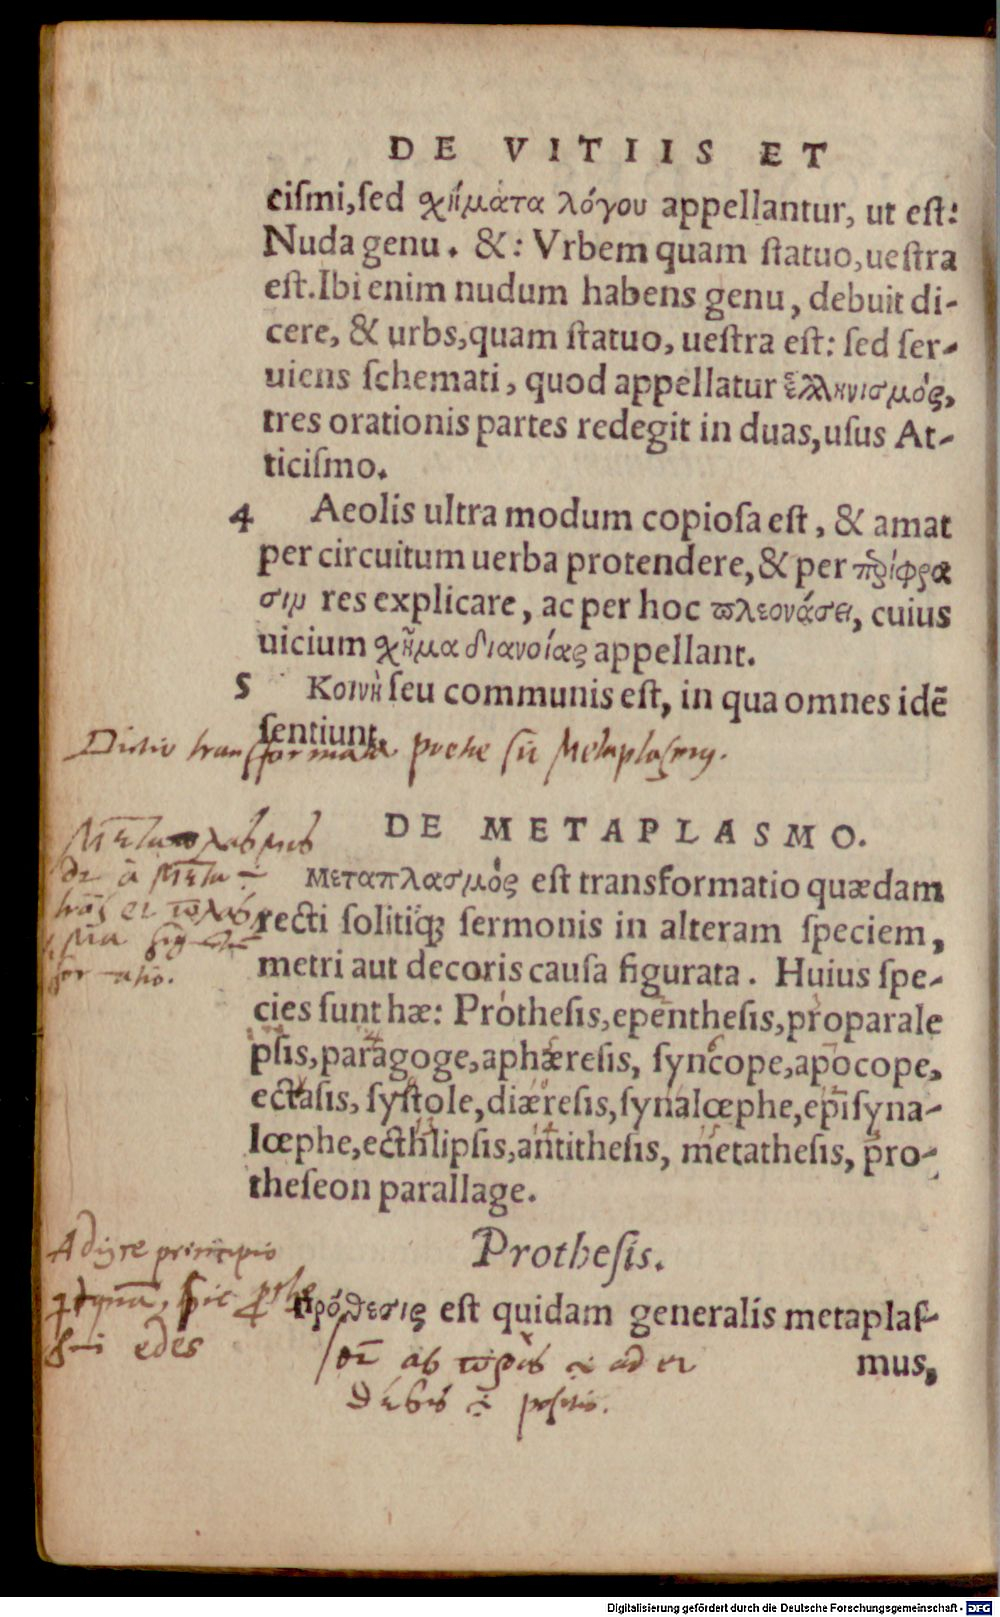 DE VITIIS ET
ciſmi, ſed σχήματα λόγου appellantur, ut eſt:
Nuda genu. &: Vrbem quam ſtatuo, ueſtra
eſt. Ibi enim nudum habens genu, debuit di-
cere, & urbs, quam ſtatuo, ueſtra eſt: ſed ſer-
uiens ſchemati, quod appellatur ἑλληνισμός,
tres orationis partes redegit in duas, uſus At-
ticiſmo.
4 Aeolis ultra modum copioſa eſt, & amat
per circuitum uerba protendere, & per πϱίφρα
σιμ res explicare, ac per hoc πλεονάσει, cuius
uicium σχῆμα διανοίας appellant.
5 Κοινὴ ſeu communis eſt, in qua omnes idē
ſentiunt.
Dictio transformata
DE METAPLASMO.
Μεταπλασμὸς eſt transformatio quædam
recti ſolitiq; ſermonis in alteram ſpeciem,
metri aut decoris cauſa figurata. Huius ſpe-
cies ſunt hæ: Protheſis, epentheſis, proparale
pſis, paragoge, aphæreſis, ſyncope, apocope,
ectaſis, ſyſtole, diæreſis, ſynalœphe, epiſyna-
lœphe, ecthlipſis, antitheſis, metatheſis, pro-
theſeon parallage.
Protheſis.
Πρόθεσις eſt quidam generalis metaplaſ-
principio
edes
mus,
Digitalisierung gefördert durch die Deutsche Forschungsgemeinschaft - DFG